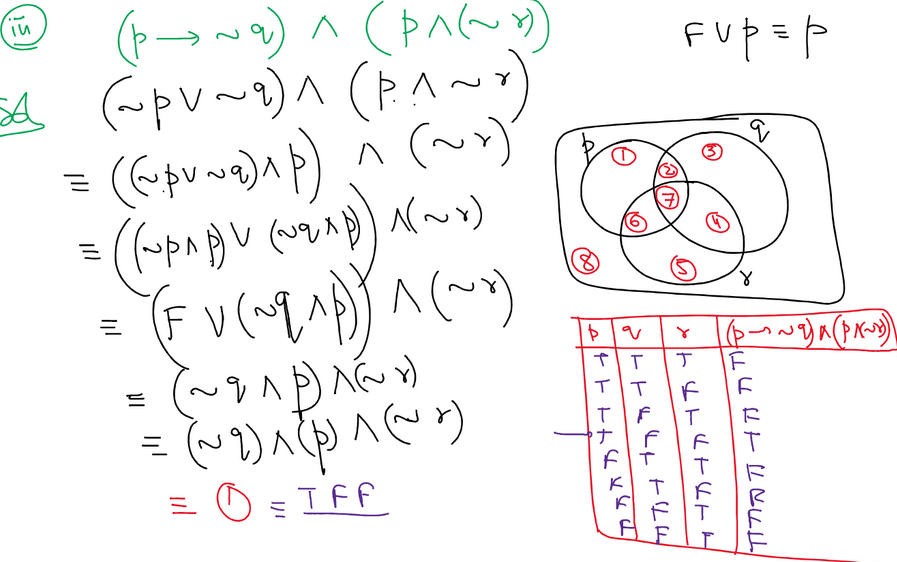 (iii) (p → ~q) ∧ (p ∧ (~r))
F ∨ p ≡ p
Sol
(~p ∨ ~q) ∧ (p ∧ ~r)
≡ ((~p ∨ ~q) ∧ p) ∧ (~r)
≡ ((~p ∧ p) ∨ (~q ∧ p)) ∧ (~r)
≡ (F ∨ (~q ∧ p)) ∧ (~r)
≡ (~q ∧ p) ∧ (~r)
≡ (~q) ∧ (p) ∧ (~r)
≡ ① ≡ TFF
p q
① ② ③
⑦
⑥ ④
⑧ ⑤
r
p q r (p → ~q) ∧ (p ∧ ~r)
T T T F
T T F F
T F T F
T F F T
F T T F
F T F F
F F T F
F F T F